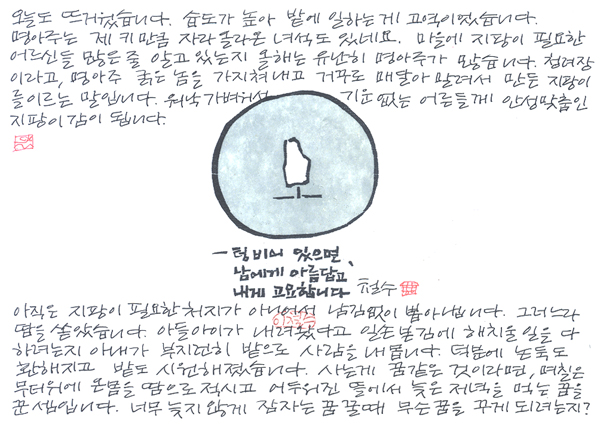 오늘도 뜨거웠습니다. 습도가 높아 밭에 일하는게 고역이었습니다.
명아주는 제 키만큼 자라올라온 녀석도 있네요. 마을에 지팡이 필요한
어르신들 많은 줄 알고 있는지 올해는 유난히 명아주가 많습니다. 청려장
이라고, 명아주 굵은 놈을 가지쳐내고 거꾸로 매달아 말려서 만든 지팡이
를 이르는 말입니다. 워낙 가벼워서 기운 없는 어른들께 안성맞춤인
지팡이감이 됩니다.
– 텅 비어 있으면,
남에게 아름답고,
내게 고요합니다
철수
아직은 지팡이 필요한 처지가 아니어서 남김없이 뽑아냅니다. 그러느라
땀을 쏟았습니다. 아들아이가 내려왔다고 일손 본김에 해치울 일을 다
하려는지 아내가 부지런히 밭으로 사람을 내몹니다. 덕분에 논둑도
환해지고 밭도 시원해졌습니다. 사는게 꿈같은 것이라면, 며칠은
무더위에 온몸을 땀으로 적시고 어두워진 뜰에서 늦은 저녁을 먹는 꿈을
꾼 셈입니다. 너무 늦지 않게 잠자는 꿈 꿀때 무슨 꿈을 꾸게 되려는지?